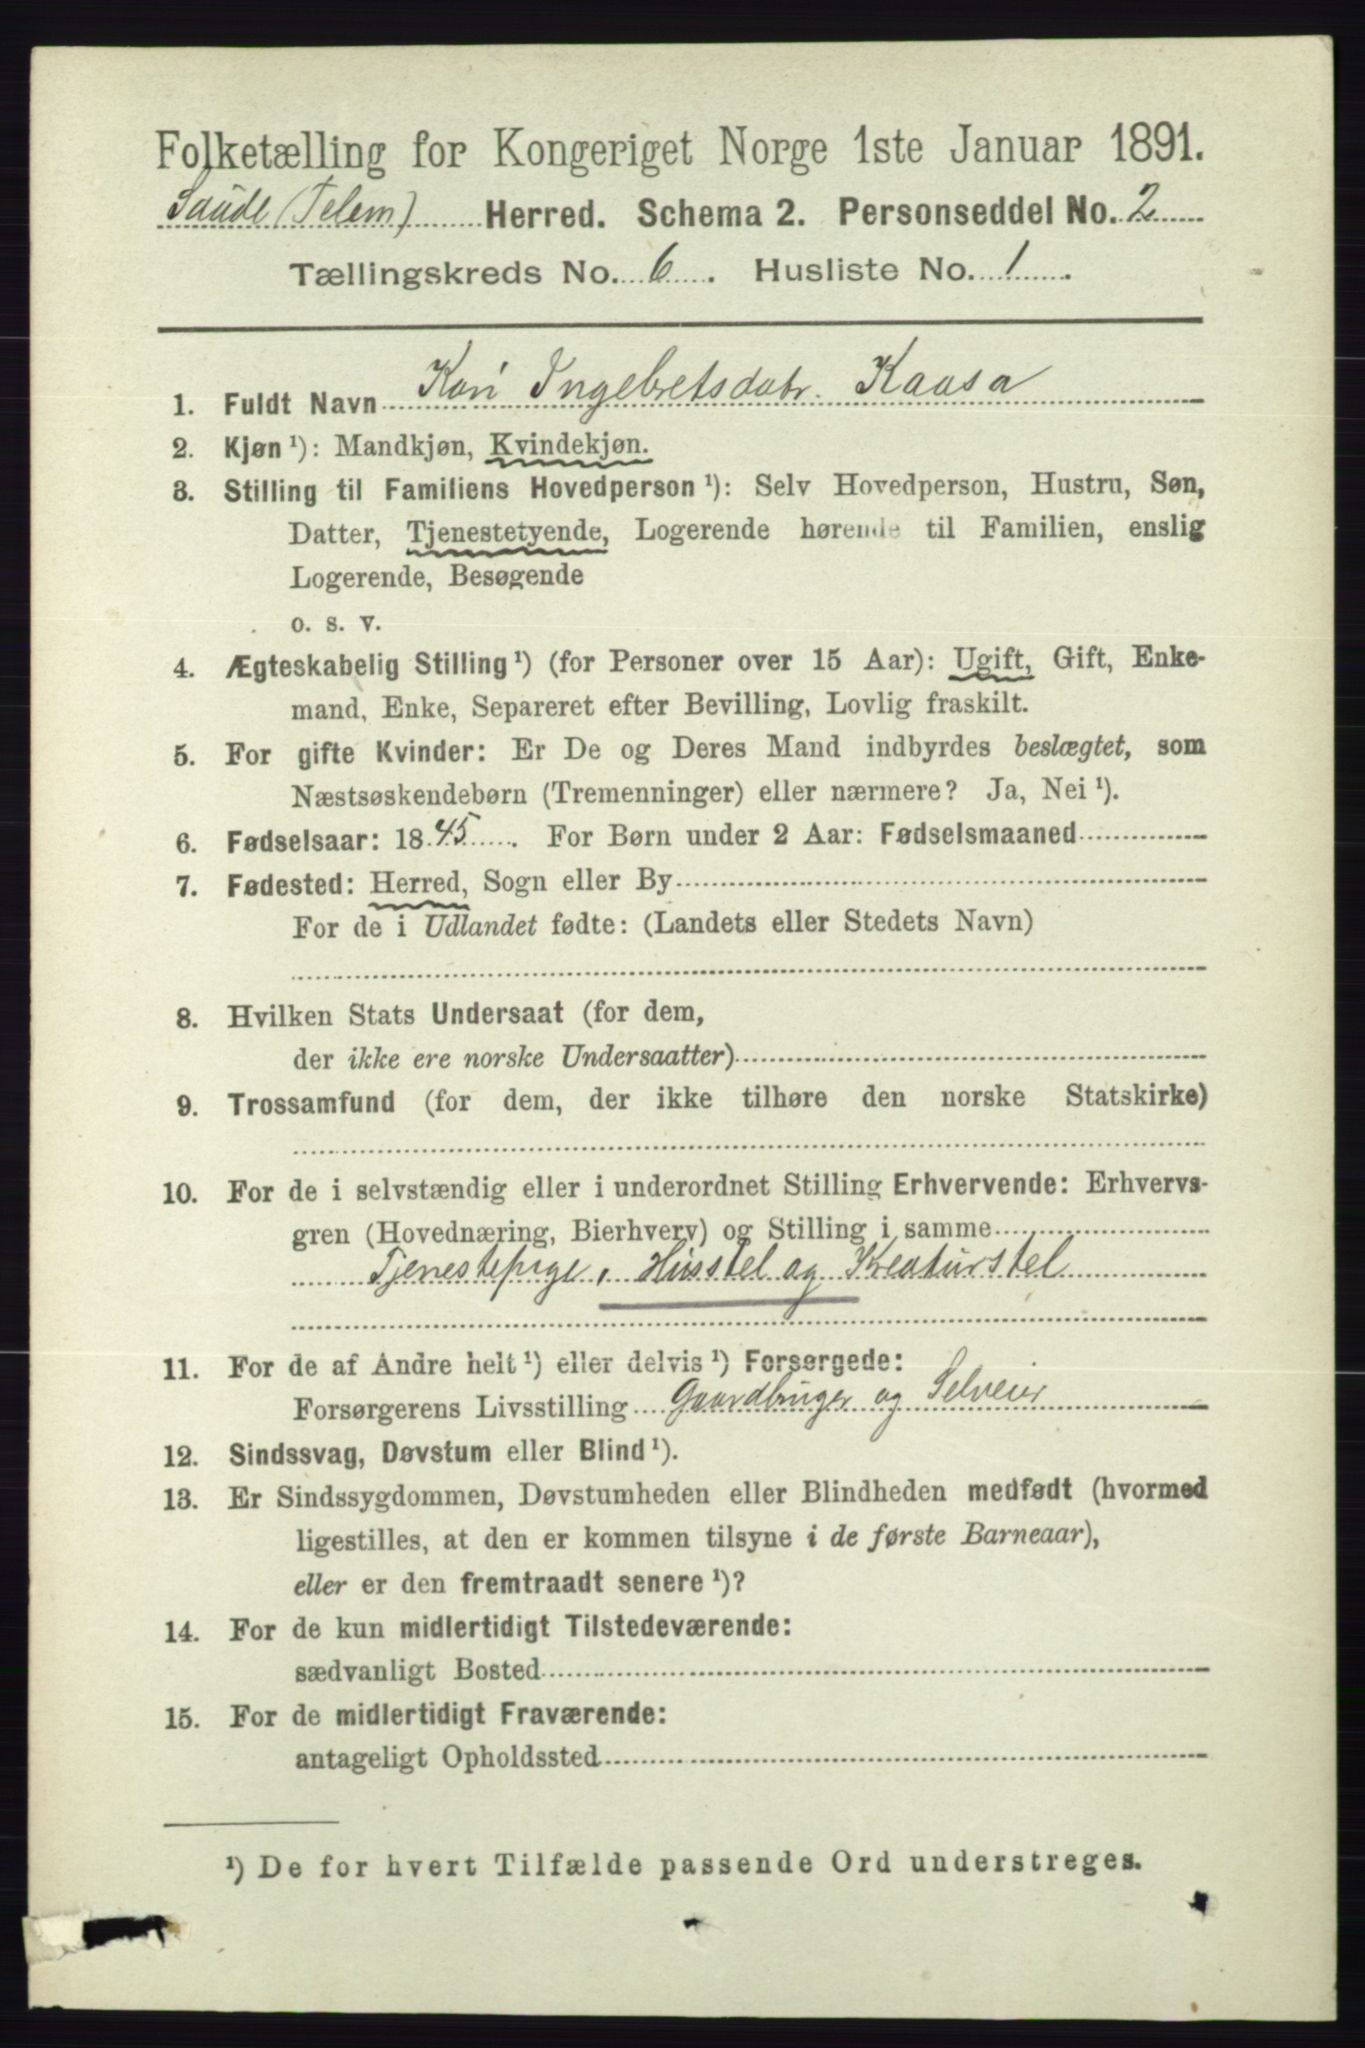 Folketælling for Kongeriget Norge 1ste Januar 1891.
Saude (Telem) Herred. Schema 2. Personseddel No. 2
Tællingskreds No. 6. Husliste No. 1.
1. Fuldt Navn Kari Ingebretsdatr. Kaasa
2. Kjøn ¹): Mandkjøn, Kvindekjøn.
3. Stilling til Familiens Hovedperson ¹): Selv Hovedperson, Hustru, Søn,
Datter, Tjenestetyende, Logerende hørende til Familien, enslig
Logerende, Besøgende
o. s. v.
4. Ægteskabelig Stilling ¹) (for Personer over 15 Aar): Ugift, Gift, Enke-
mand, Enke, Separeret efter Bevilling, Lovlig fraskilt.
5. For gifte Kvinder: Er De og Deres Mand indbyrdes beslægtet, som
Næstsøskendebørn (Tremenninger) eller nærmere? Ja, Nei ¹).
6. Fødselsaar: 1845. For Børn under 2 Aar: Fødselsmaaned
7. Fødested: Herred, Sogn eller By
For de i Udlandet fødte: (Landets eller Stedets Navn)
8. Hvilken Stats Undersaat (for dem,
der ikke ere norske Undersaatter)
9. Trossamfund (for dem, der ikke tilhøre den norske Statskirke)
10. For de i selvstændig eller i underordnet Stilling Erhvervende: Erhvervs-
gren (Hovednæring, Bierhverv) og Stilling i samme
Tjenestepige, Husstel og Kreaturstel
11. For de af Andre helt ¹) eller delvis ¹) Forsørgede:
Forsørgerens Livsstilling Gaardbruger og Selveier
12. Sindssvag, Døvstum eller Blind ¹).
13. Er Sindssygdommen, Døvstumheden eller Blindheden medfødt (hvormed
ligestilles, at den er kommen tilsyne i de første Barneaar),
eller er den fremtraadt senere ¹)?
14. For de kun midlertidigt Tilstedeværende:
sædvanligt Bosted
15. For de midlertidigt Fraværende:
antageligt Opholdssted
¹) De for hvert Tilfælde passende Ord understreges.